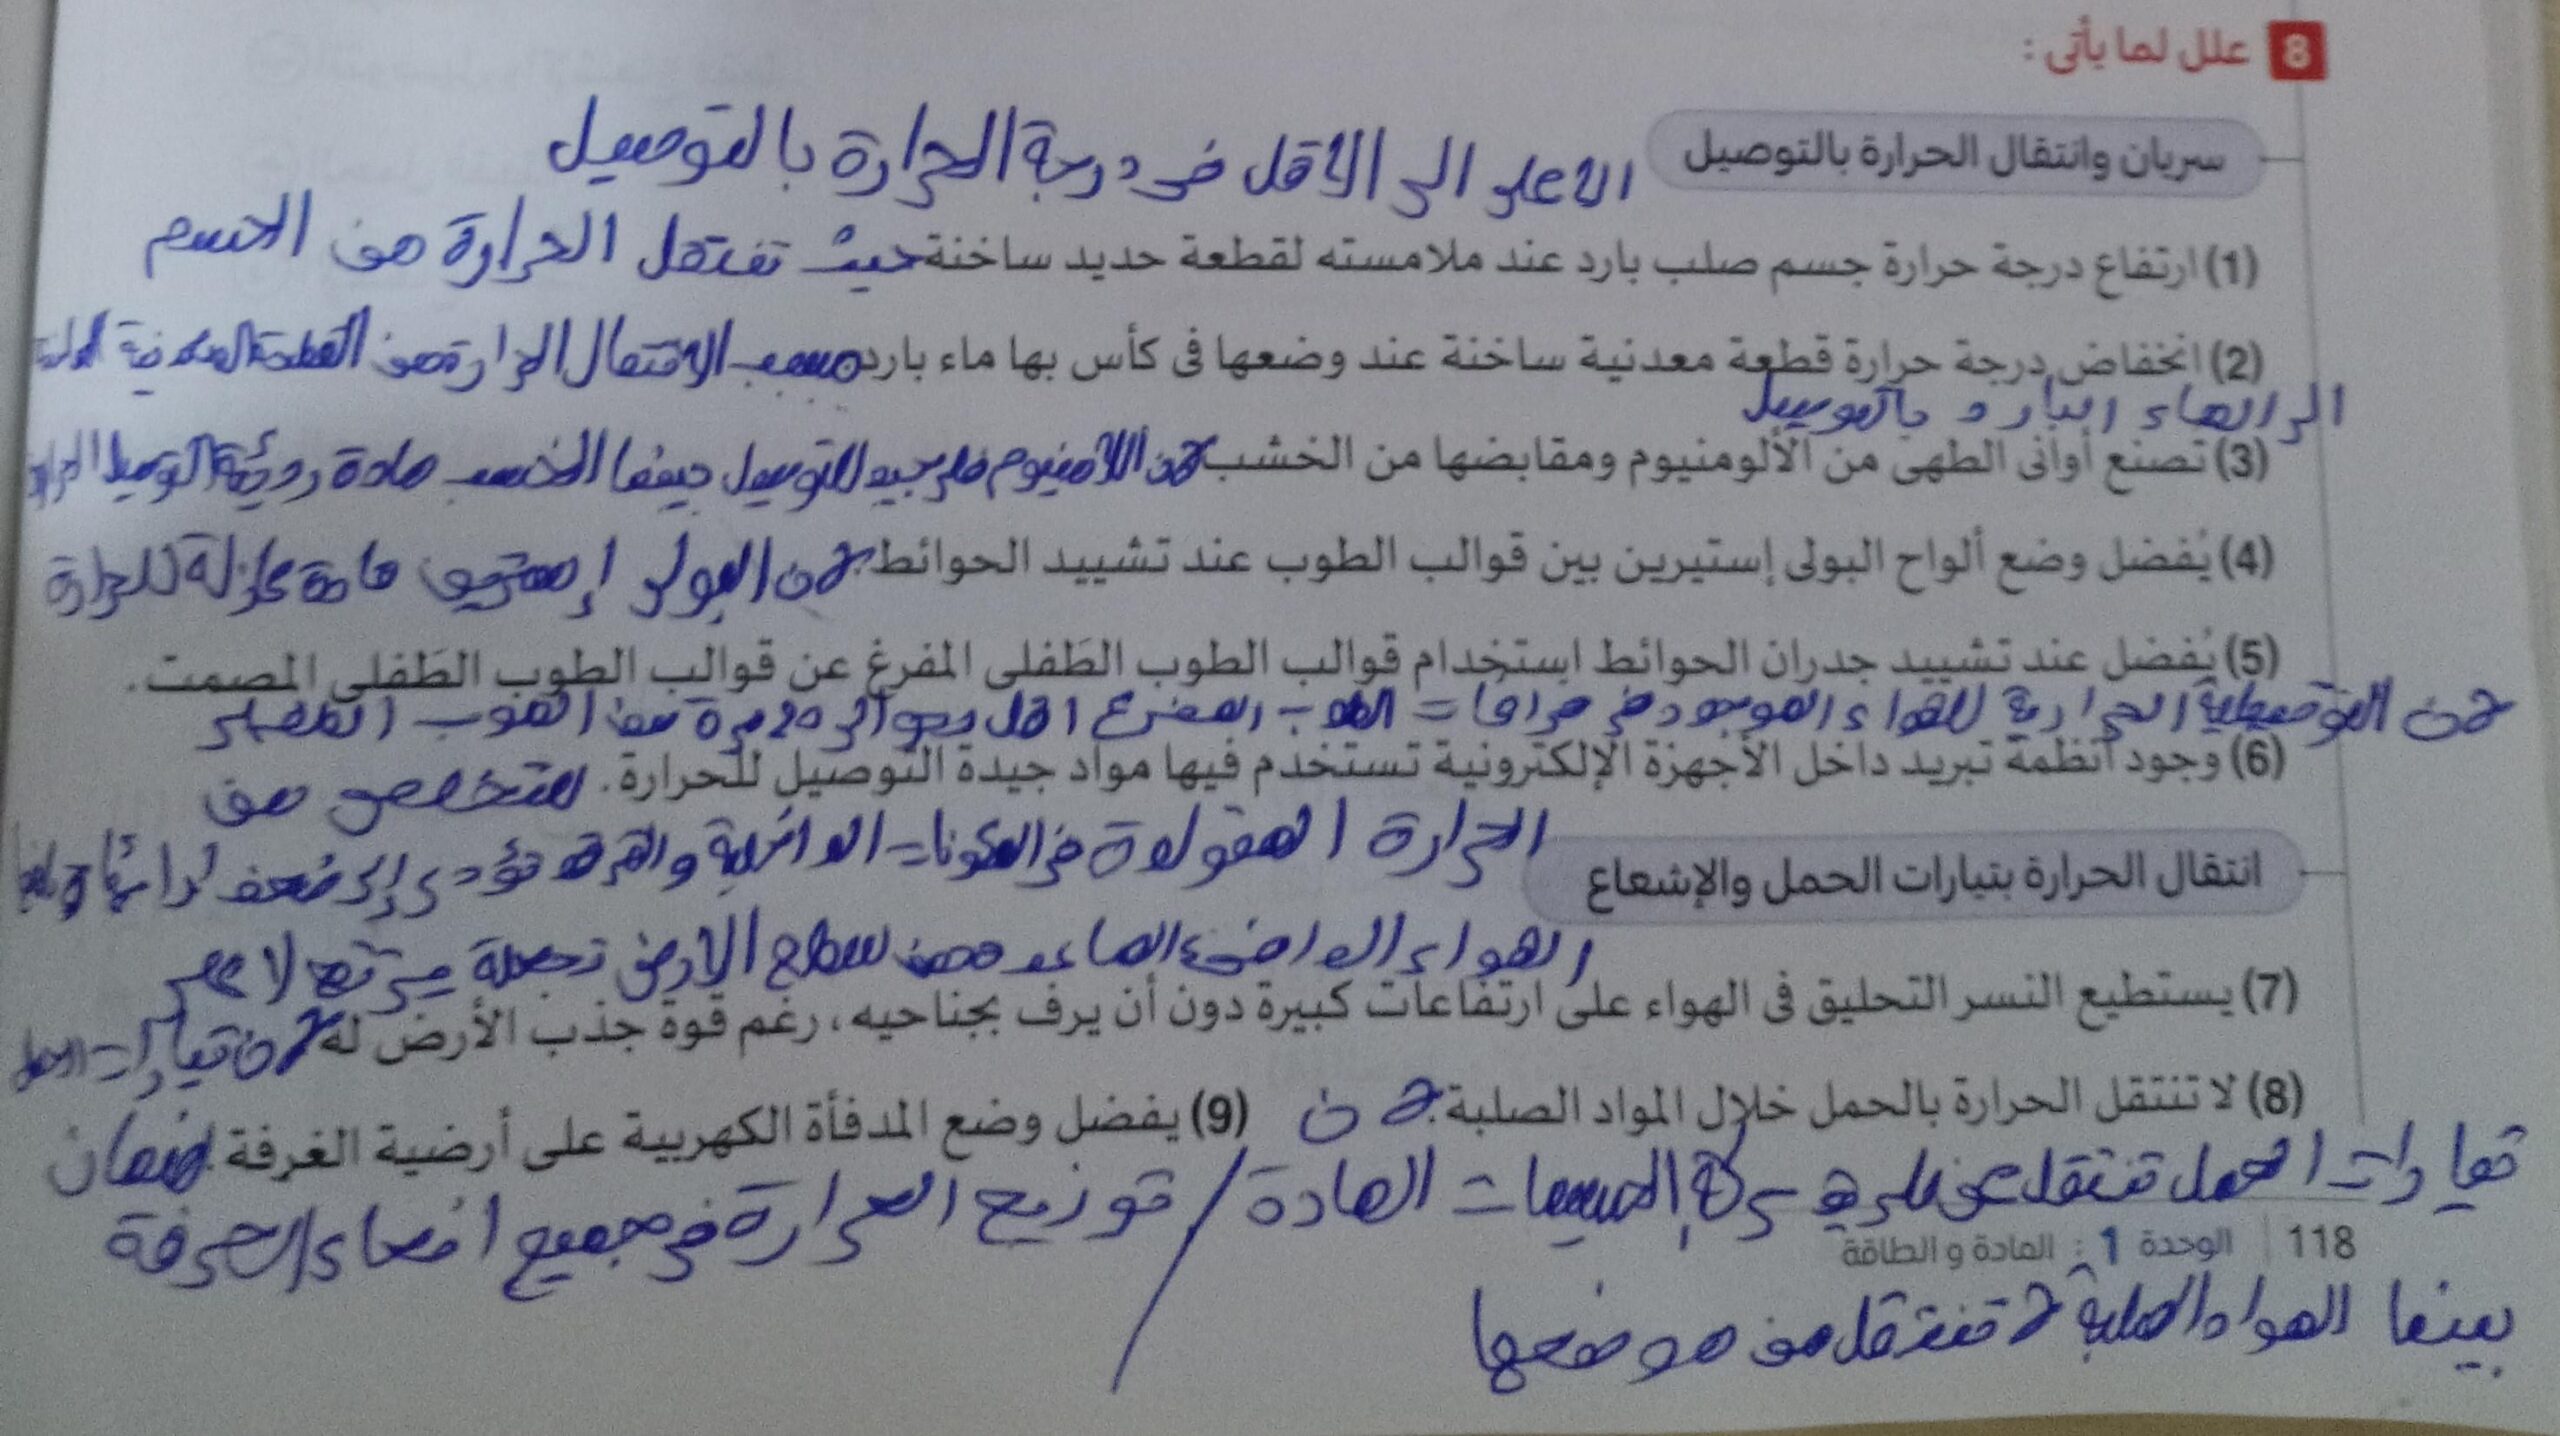 8 علل لما يأتى :
سريان وانتقال الحرارة بالتوصيل الاعلى الى الاقل فى درجة الحرارة بالتوصيل
(1) ارتفاع درجة حرارة جسم صلب بارد عند ملامسته لقطعة حديد ساخنة حيث تنتقل الحرارة من الجسم
(2) انخفاض درجة حرارة قطعة معدنية ساخنة عند وضعها فى كأس بها ماء بارد بسبب الانتقال الحرارة من القطعة المعدنية
الى الماء البارد بالتوصيل
(3) تصنع أوانى الطهى من الألومنيوم ومقابضها من الخشب لان الالمنيوم فلز جيد للتوصيل بينما الخشب مادة رديئة التوصيل
(4) يُفضل وضع ألواح البولى إستيرين بين قوالب الطوب عند تشييد الحوائط لان البولى إسترين مادة عازلة للحرارة
(5) يُفضل عند تشييد جدران الحوائط استخدام قوالب الطوب الطَفلى المفرغ عن قوالب الطوب الطَفلى المصمت.
لان التوصيلية الحرارية للهواء الموجود فى فراغات الطوب المفرغ اقل بحوالى 20 مرة من الطوب الطفلى
(6) وجود أنظمة تبريد داخل الأجهزة الإلكترونية تستخدم فيها مواد جيدة التوصيل للحرارة. للتخلص من
الحرارة المتولدة فى المكونات الداخلية والتى قد تؤدى إلى ضعف
انتقال الحرارة بتيارات الحمل والإشعاع
الهواء الدافئ الصاعد من سطح الارض تجعلة يرتفع لاعلى
(7) يستطيع النسر التحليق فى الهواء على ارتفاعات كبيرة دون أن يرف بجناحيه، رغم قوة جذب الأرض له لان تيارات الحمل
(8) لا تنتقل الحرارة بالحمل خلال المواد الصلبة. لان
(9) يفضل وضع المدفأة الكهربية على أرضية الغرفة. لضمان
تيارات الحمل تنتقل عن طريق حركة جسيمات المادة / توزيع الحرارة فى جميع انحاء الغرفة
118 الوحدة 1 : المادة و الطاقة
بينما المواد الصلبة لا تنتقل من موضعها